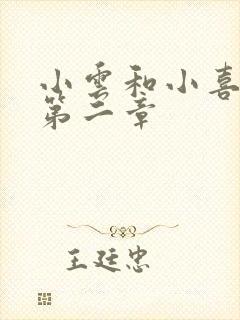 小雲和小喜
第二章
王廷忠